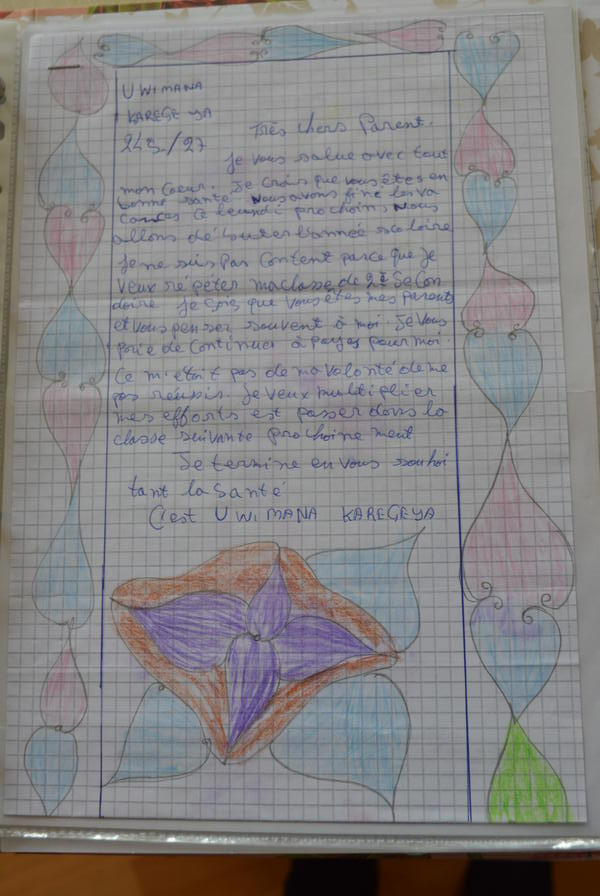 UWIMANA
KAREGEYA
243/27
Très chers Parent.
Je vous salue avec tout
mon Coeur. Je crois que vous êtes en
bonne santé. Nous avons fini les va
cances ce leundi prochain, Nous
allons débuter l'année scolaire
Je ne suis pas Content parce que je
veux répéter ma classe de 2è Secon
daire. Je sais que vous êtes mes parents
et vous penser souvent à moi. Je vous
prie de Continuer à payer pour moi.
Ce m'etait pas de ma volonté de ne
pas réussir. Je veux multiplier
mes efforts est passer dans la
classe suivante prochainement
Je termine en vous souhai
tant la Santé
C'est UWIMANA KAREGEYA